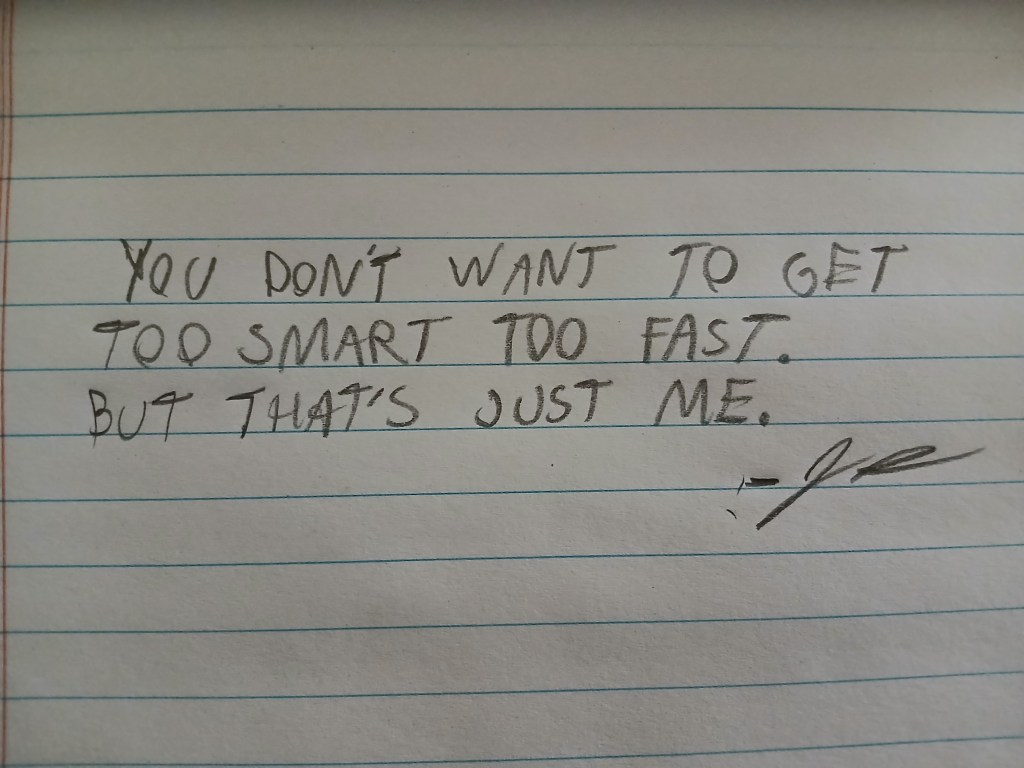 YOU DON'T WANT TO GET
TOO SMART TOO FAST.
BUT THAT'S JUST ME.